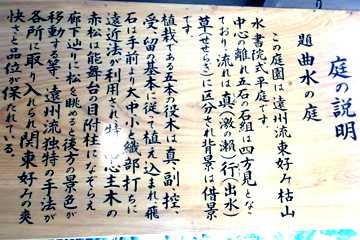 庭の説明
題 曲水の庭
この庭園は遠州流東好み枯山
水書院式平庭です。
中心の離れ五石の石組は四方見となっ
ており流れは真(激の瀬)行(出水)
草(せせらぎ)に区分され背景は借景
です。
植栽である五本の役木は真、副、控、
受、留の基本に従って植え込まれ飛
石は手前より大中小と織部打ちに
遠近法が利用され特に中心主木の
赤松は能舞台の目附柱になぞらえ
廊下辺りに松を眺めると後方の景色が
移動する等、遠州流独特の手法が
各所に取り入れられ関東好みの爽
快さと品位が保たれている。